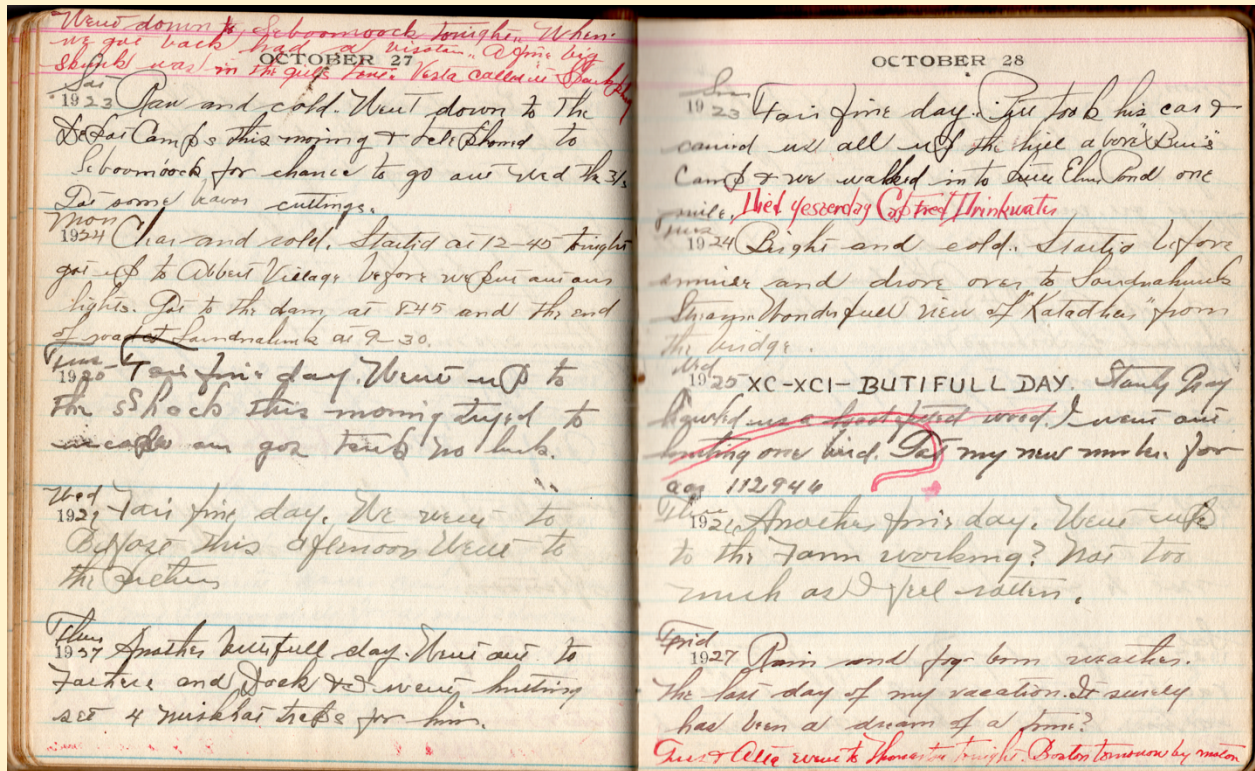 Went down to Seboomoock tonight. When
we got back had a visitor. A fine big
skunk was in the girls tent. Vesta called it
OCTOBER 27
Sat
1923 Raw and cold. Went down to the
Camps this morning & telephoned to
Seboomoock for chance to go out Wed the 31s
Got some beavor cuttings.
Mon
1924 Clear and cold. Started at 12-45 tonight
got up to Abbert Village before we put out our
lights. Got to the dam at 8.45 and the end
of road at Sourdnahunk at 9-30.
Tues
1925 Fair fine day. Went up to
the sShack this morning tryed to
our gas tank no luck.
Wed
192 Fair fine day. We went to
Belfast this afternoon Went to
the Pictures
Thurs
1927 Another butifull day. Went out to
Fathers and Dock & I went hunting
set 4 muskrat traps for him.
OCTOBER 28
Sun
1923 Fair fine day. took his car &
carried us all up the hill above "Ben's"
Camp & we walked in to Elm Pond one
mile. Died yesterday Capt Fred Drinkwater
Tues
1924 Bright and cold. Started before
sunrise and drove over to Sourdnahunk
Stream. Wonderfull view of "Katadhen" from
the bridge.
Wed
1925 XC-XCI- BUTIFULL DAY. Stanly Gray
hawled us a load of wood. I went out
hunting one bird. Got my new number for
car 112944
Thur
192 Another fine day. Went up
to the Farm working? Not too
much as I feel rotten.
Frid
1927 Rain and fog bum weather.
The last day of my vacation. It surely
has been a dream of a time?
Gus & went to Thomaston tonight. Boston tomorrow by motor